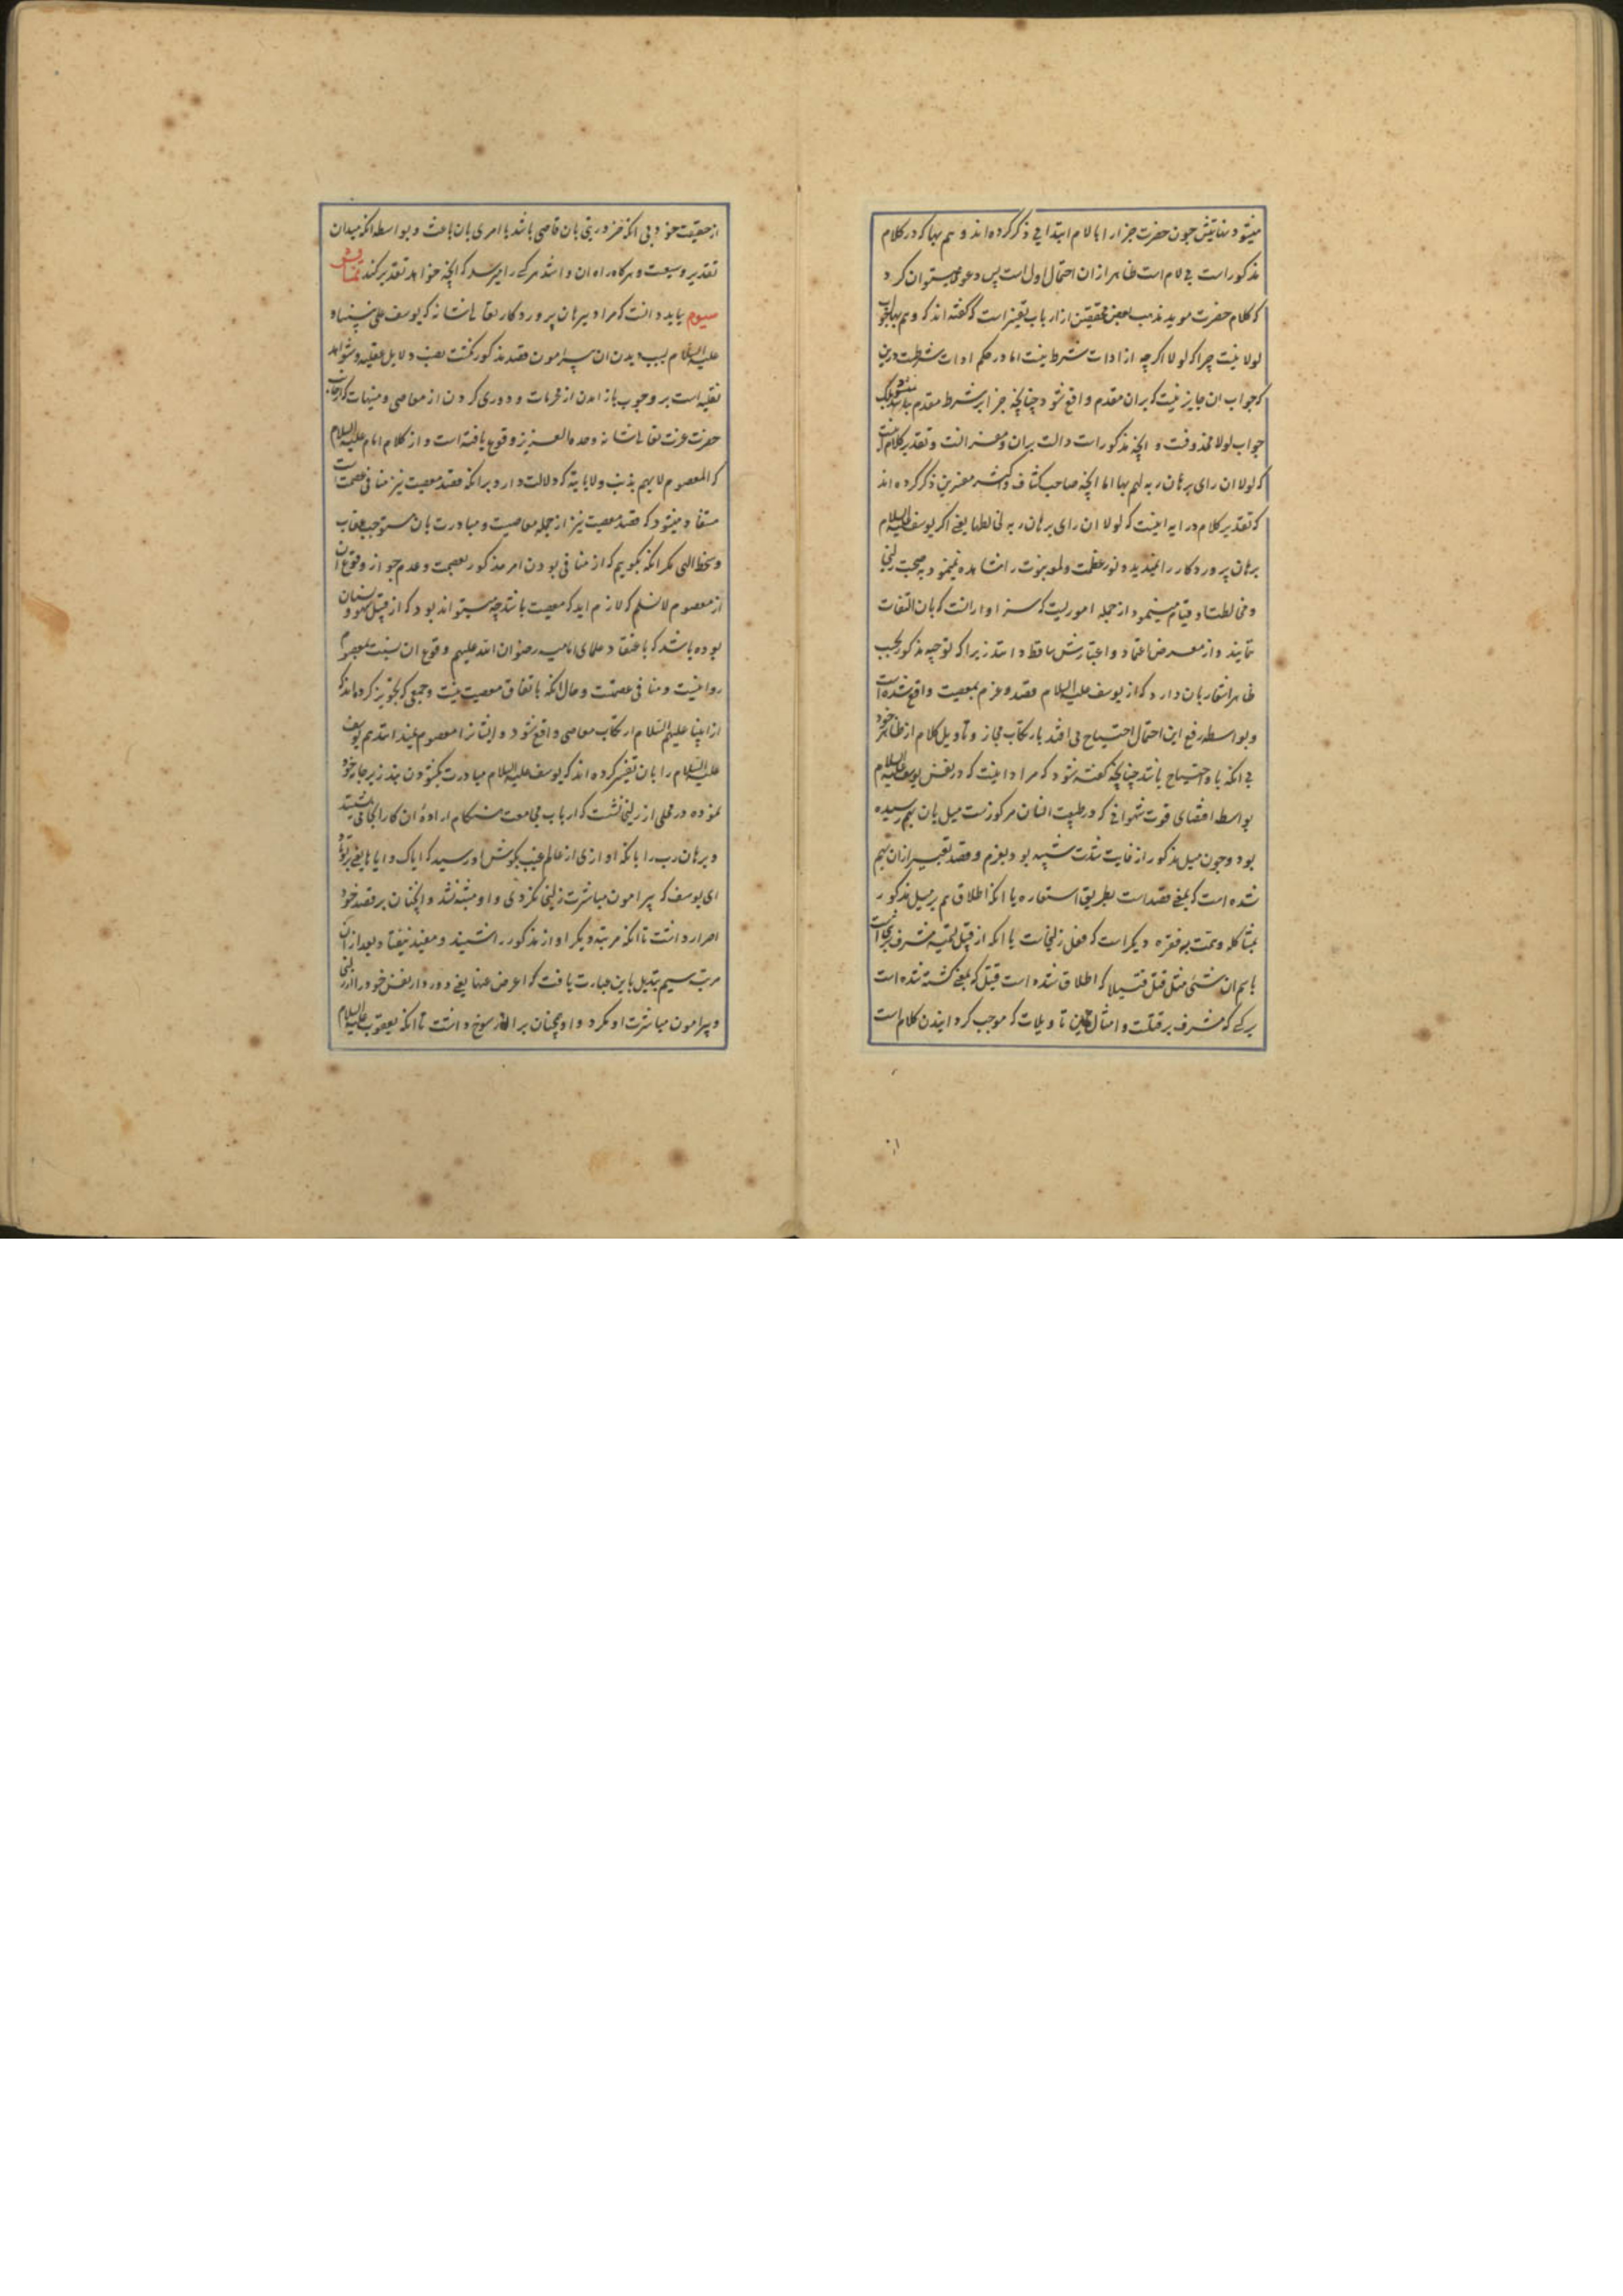 میشود نهایتش چون حضرت جزا را با لام ابتدایی ذکر کرده‌اند و هم بها که در کلام
مذکور است بی لام است ظاهر ازان احتمال اول است پس دعوی میتوان کرد
که کلام حضرت موید مذهب بعض محققین از ارباب تفسیر است که گفته‌اند که و هم بها جواب
لولا نیست چرا که لولا اگرچه از ادات شرط نیست اما در حکم ادات شرطست درین
که جواب ان جایز نیست که بران مقدم واقع شود چنانچه جزا بر شرط مقدم نمیشود بلکه
جواب لولا محذوفست و انچه مذکور است دالست بران و مفسر انست و تقدیر کلام اینست
که لولا ان رای برهان ربه لهم بها اما انچه صاحب کشاف و اکثر مفسرین ذکر کرده‌اند
که تقدیر کلام در ایه اینست که لولا ان رای برهان ربه لخالطها یعنی اگر یوسف علیه السلام
برهان پروردکار را نمیدید و نور عظمت و لمعه نبوت را مشاهده نمینمود به صحبت زلیخا
و مخالطت او قیام مینمود از جمله اموریست که سزاوار انست که بان التفات
ننمایند و از معرض اعتماد و اعتبارش ساقط دانند زیرا که توجیه مذکور بحسب
ظاهر اشعار بان دارد که از یوسف علیه السلام قصد و عزم بمعصیت واقع شده است
و بواسطه رفع این احتمال احتیاج می افتد بارتکاب مجاز و تاویل کلام از ظاهر خود
بی انکه باو احتیاج باشد چنانچه کفته شود که مراد اینست که در نفس یوسف علیه السلام
بواسطه اقتضای قوت شهوانی که در طبیعت انسان مرکوزست میل بان بهم رسیده
بود و چون میل مذکور از غایت شدت شبیه بود بعزم و قصد تعبیر ازان بهم
شده است که بمعنی قصد است بطریق استعاره یا انکه اطلاق هم بر میل مذکور
بمشاکله و همت به فقره دیکر است که فعل زلیخاست یا انکه از قبیل تسمیه مشرف بر چیزیست
باسم ان شیء مثل قتل قتیلا که اطلاق شده است قتیل که بمعنی کشته شده است
بر کسی که مشرف بر قتلست و امثال این تاویلات که موجب کردانیدن کلام است
از
از حقیقت خود بی انکه ضرورتی بان قاضی باشد یا امری بان باعث و بواسطه انکه میدان
تقدیر وسیعست و هرکاه راه ان وا شد هر کس را میرسد که انچه خواهد تقدیر کند نمایش
سیوم باید دانست که مراد ببرهان پروردکار تعالی شانه که یوسف علی نبینا و
علیه السلام بسبب دیدن ان پیرامون قصد مذکور نکشت نصب دلایل عقلیه و شواهد
نقلیه است بر وجوب باز امدن از محرمات و دوری کردن از معاصی و منهیات که از جانب
حضرت عزت تعالی شانه وحده العزیز وقوع یافته است و از کلام امام علیه السلام
که المعصوم لا یهم بذنب و لا یاتیه که دلالت دارد برانکه قصد معصیت نیز منافی عصمت است
مستفاد میشود که قصد معصیت نیز از جمله معاصیست و مبادرت بان مستوجب عقاب
و سخط الهی مکر انکه بکوییم که از منافی بودن امر مذکور بعصمت و عدم جواز وقوع ان
از معصوم لا نسلم که لازم اید که معصیت باشد چه میتواند بود که از قبیل سهو و نسیان
بوده باشد که باعتقاد علمای امامیه رضوان الله علیهم وقوع ان نسبت بمعصوم
روا نیست و منافی عصمتست و حال انکه باتفاق معصیت نیست و جمعی که تجویز کرده‌اند که
از انبیا علیهم السلام ارتکاب معاصی واقع شود و ایشانرا معصوم نمیدانند هم یوسف
علیه السلام را بان تفسیر کرده‌اند که یوسف علیه السلام مبادرت بکشودن بند زیرجامه خود
نموده در محلی از زلیخا نشست که ارباب مجامعت هنکام اراده ان کار انجا می نشینند
و برهان رب را بانکه اوازی از عالم غیب بکوش او رسید که ایاک و ایاها یعنی بر تو باد
ای یوسف که پیرامون مباشرت زلیخا نکردی و او متنبه نشد و انچنان بر قصد خود
اصرار داشت تا انکه مرتبه دیکر اواز مذکور را شنید و مفید نیفتاد و بعد از ان
مرتبه سیم تبدیل باین عبارت یافت که اعرض عنها یعنی دور دار نفس خود را از زلیخا
و پیرامون مباشرت او مکرد و او همچنان بر ان رسوخ داشت تا انکه یعقوب علیه السلام